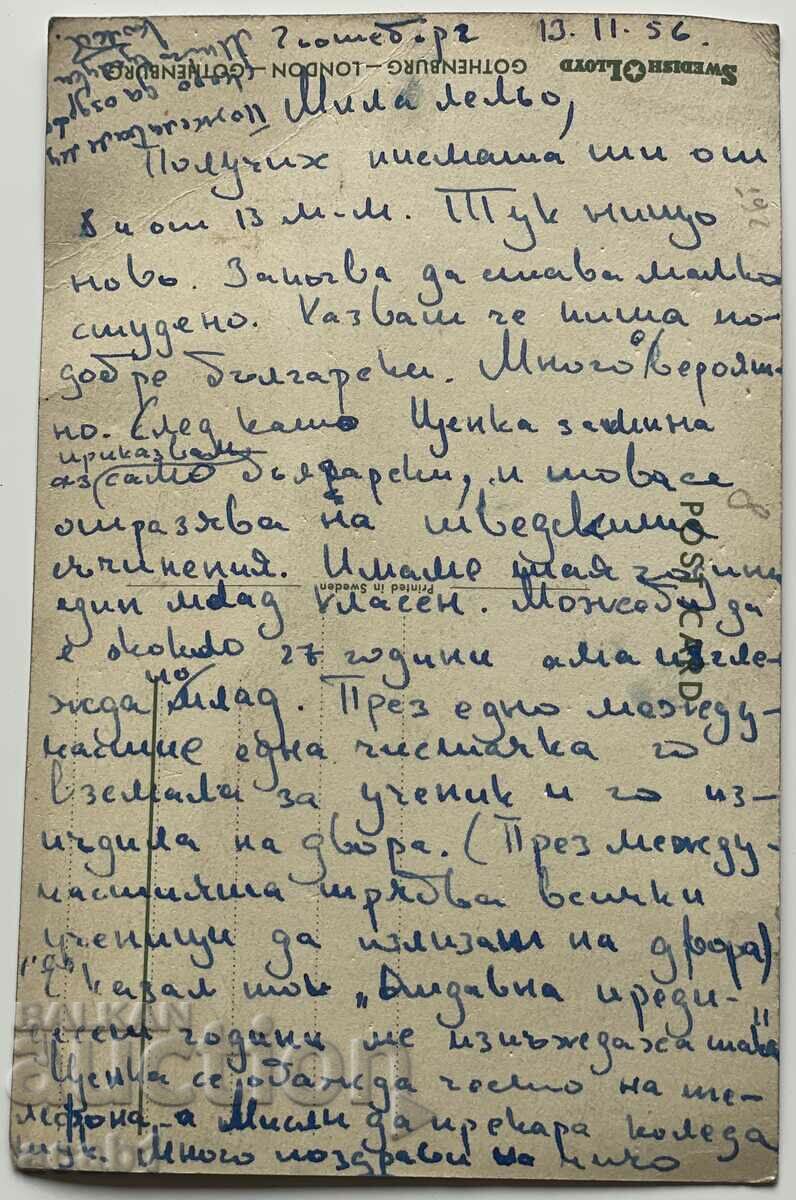 Гютеборг 13.11.56.
SWEDISH LLOYD
GOTHENBURG – LONDON – GOTHENBURG
Мила лельо,
Получих писмата ти от
8 и от 13 м-м. Тук нищо
ново. Започва да става малко
студено. Казваш че пиша по-
добре български. Много вероят-
но. След като Щенка замина
аз приказвам само български, и това се
отразява на шведските
съчинения. Имаме тая година
един млад класен. Може би да
е около 27 години ама изгле-
жда по млад. През едно между-
частие една чистачка го
вземала за ученик и го из-
пъдила на двора. (През между-
частията трябва всички
ученици да излизат на двора)
"Е" казал той „Отдавна преди
десет години ме изпъждаха така"
Щенка се обажда често на те-
лефона а мисли да прекара коледа
тук. Много поздрави на чичо
Пожелавам му
да оздраве
Много
POST CARD
Printed in Sweden
BALKAN
auction